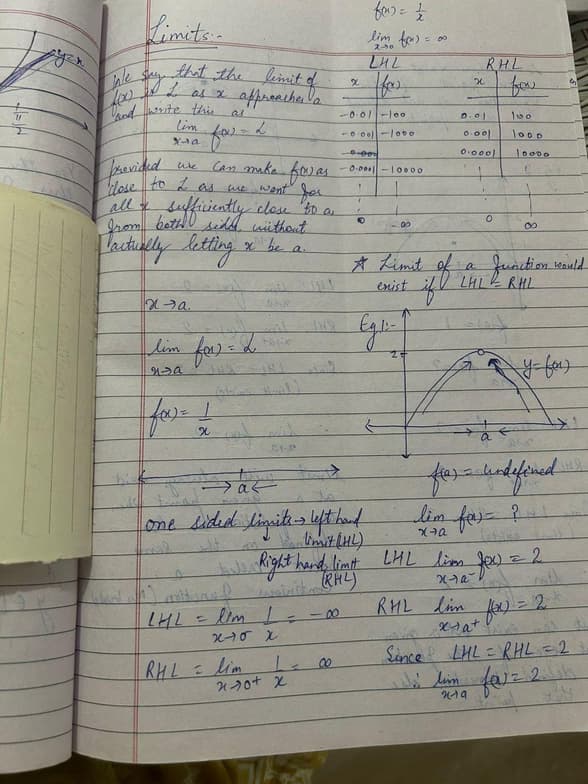 y=x
π
2
Limits:-
We say that the limit of
f(x) is L as x approaches a
and write this as
lim f(x) = L
x→a
provided we can make f(x) as
close to L as we want for
all x sufficiently close to a
from both sides, without
actually letting x be a.
x→a.
lim f(x) = L
x→a
f(x) = 1/x
→ a ←
one sided limits → left hand
limit (LHL)
↓
Right hand limit
(RHL)
LHL = lim 1/x = -∞
x→0-
RHL = lim 1/x = ∞
x→0+
f(x) = 1/x
lim f(x) = ∞
x→0
LHL RHL
x f(x) x f(x)
-0.01 -100 0.01 100
-0.001 -1000 0.001 1000
0.0001 10000
-0.0001 -10000
0 -∞ 0 ∞
* Limit of a function would
exist if LHL = RHL
Eg1:-
2
y=f(x)
→ a ←
f(a) = undefined
lim f(x) = ?
x→a
LHL lim f(x) = 2
x→a-
RHL lim f(x) = 2
x→a+
Since LHL = RHL = 2
∴ lim f(x) = 2
x→a